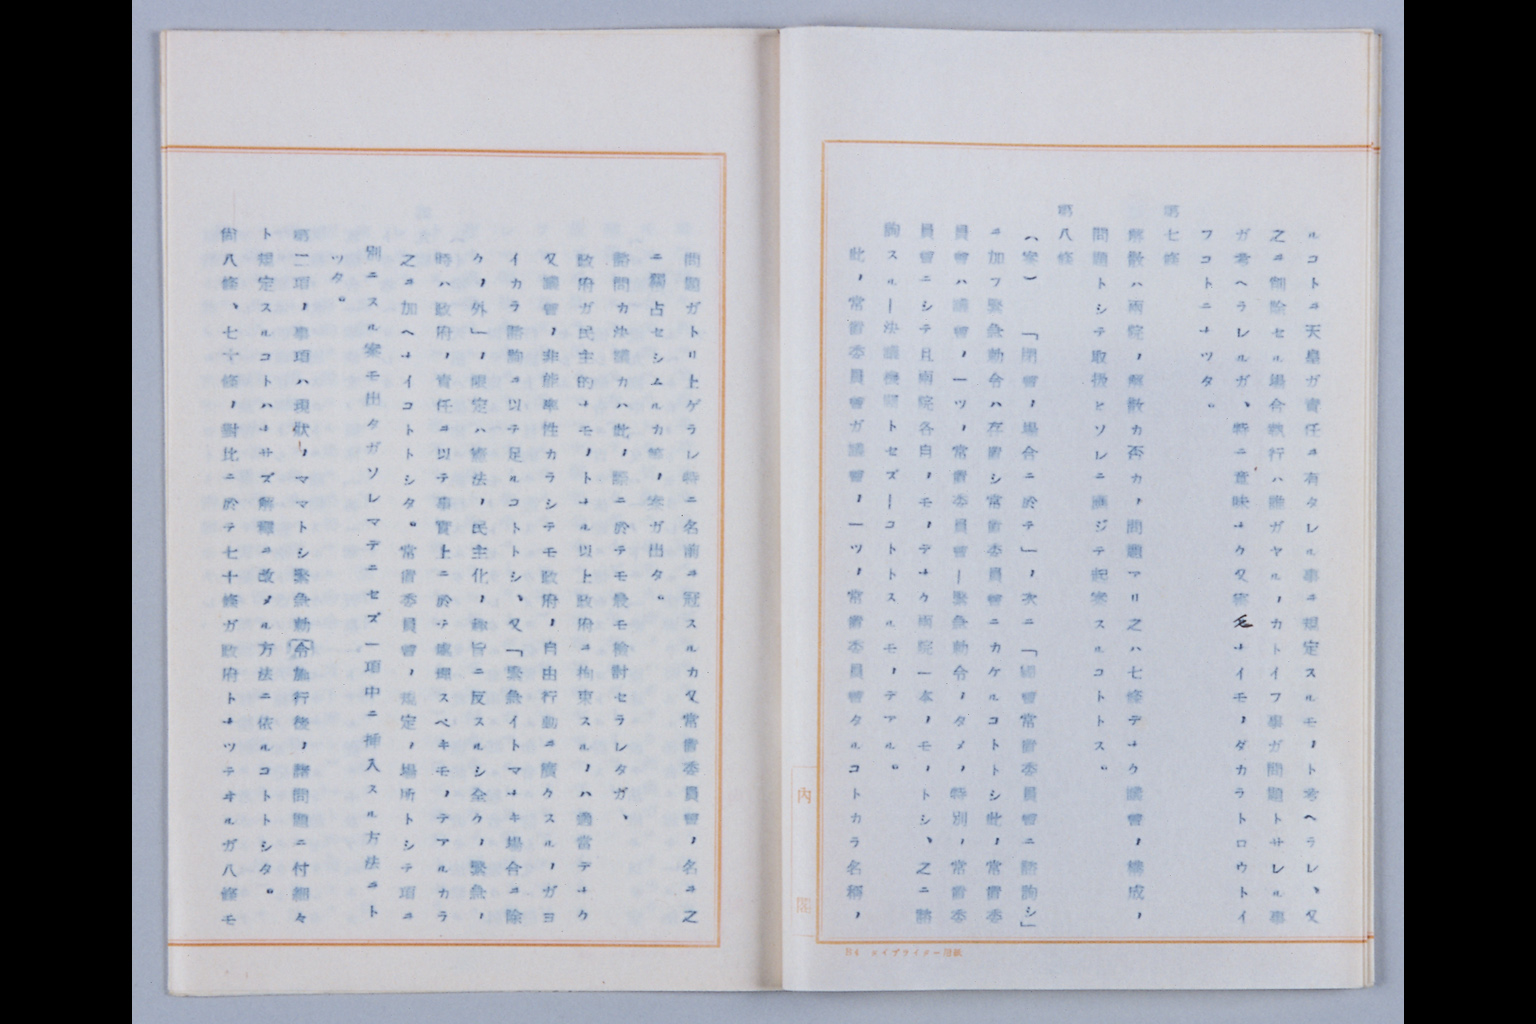 ルコトヲ天皇ガ責任ヲ有タレル事ヲ規定スルモノト考ヘラレ、又
之ヲ削除セル場合執行ハ誰ガヤルノカトイフ事ガ問題トサレル事
ガ考ヘラレルガ、特ニ意味ナク又案モナイモノダカラトロウトイ
フコトニナツタ。
第七條
解散ハ兩院ノ解散カ否カノ問題アリ之ハ七條デナク議會ノ構成ノ
問題トシテ取扱ヒソレニ應ジテ起案スルコトトス。
第八條
(案) 「閉會ノ場合ニ於テ」ノ次ニ「國會常置委員會ニ諮詢シ」
ヲ加フ緊急勅令ハ存置シ常置委員會ニカケルコトトシ此ノ常置委
員會ハ議會ノ一ツノ常置委員會―緊急勅令ノタメノ特別ノ常置委
員會ニシテ且兩院各自ノモノデナク兩院一本ノモノトシ、之ニ諮
詢スル―決議機關トセズ―コトトスルモノデアル。
此ノ常置委員會ガ議會ノ一ツノ常置委員會タルコトカラ名稱ノ
內閣
B4 タイプライター用紙
問題ガトリ上ゲラレ特ニ名前ヲ冠スルカ又常置委員會ノ名ヲ之
ニ獨占セシムルカ等ノ案ガ出タ。
諮問カ決議カハ此ノ際ニ於テモ最モ檢討セラレタガ、
政府ガ民主的ナモノトナル以上政府ヲ拘束スルノハ適當デナク
又議會ノ非能率性カラシテモ政府ノ自由行動ヲ廣クスルノガヨ
イカラ諮詢ヲ以テ足ルコトトシ、又「緊急イトマナキ場合ヲ除
クノ外」ノ限定ハ憲法ノ民主化ノ趣旨ニ反スルシ全クノ緊急ノ
時ハ政府ノ責任ヲ以テ事實上ニ於テ處理スベキモノデアルカラ
之ヲ加ヘナイコトトシタ。常置委員會ノ規定ノ場所トシテ項ヲ
別ニスル案モ出タガソレマデニセズ一項中ニ挿入スル方法ヲト
ツタ。
第二項ノ事項ハ現狀ノママトシ緊急勅令施行後ノ諸問題ニ付細々
ト規定スルコトハナサズ解釋ヲ改メル方法ニ依ルコトトシタ。
尚八條、七十條ノ對比ニ於テ七十條ガ政府トナツテヰルガ八條モ